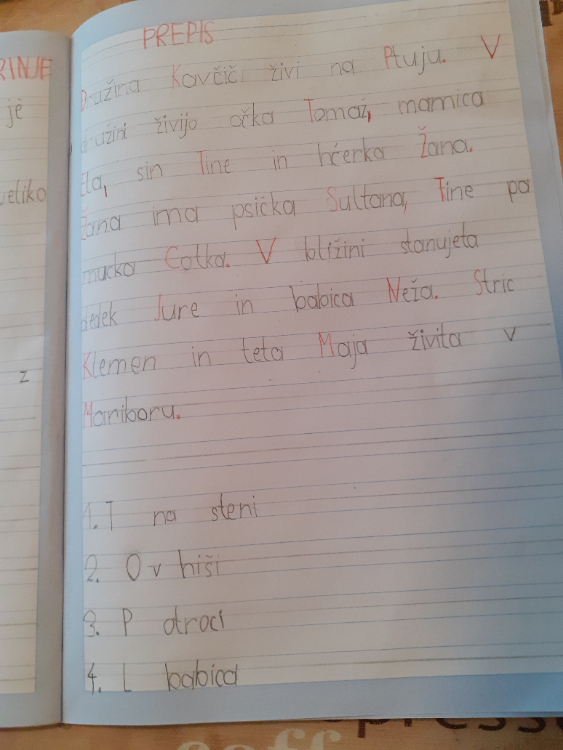 RINJE
je
veliko
z
PREPIS
Družina Kovčič živi na Ptuju. V
družini živijo očka Tomaž, mamica
Ela, sin Tine in hčerka Žana.
Žana ima psička Sultana, Tine pa
mucka Cofka. V bližini stanujeta
dedek Jure in babica Neža. Stric
Klemen in teta Maja živita v
Mariboru.
1. T na steni
2. O v hiši
3. P otroci
4. L babica